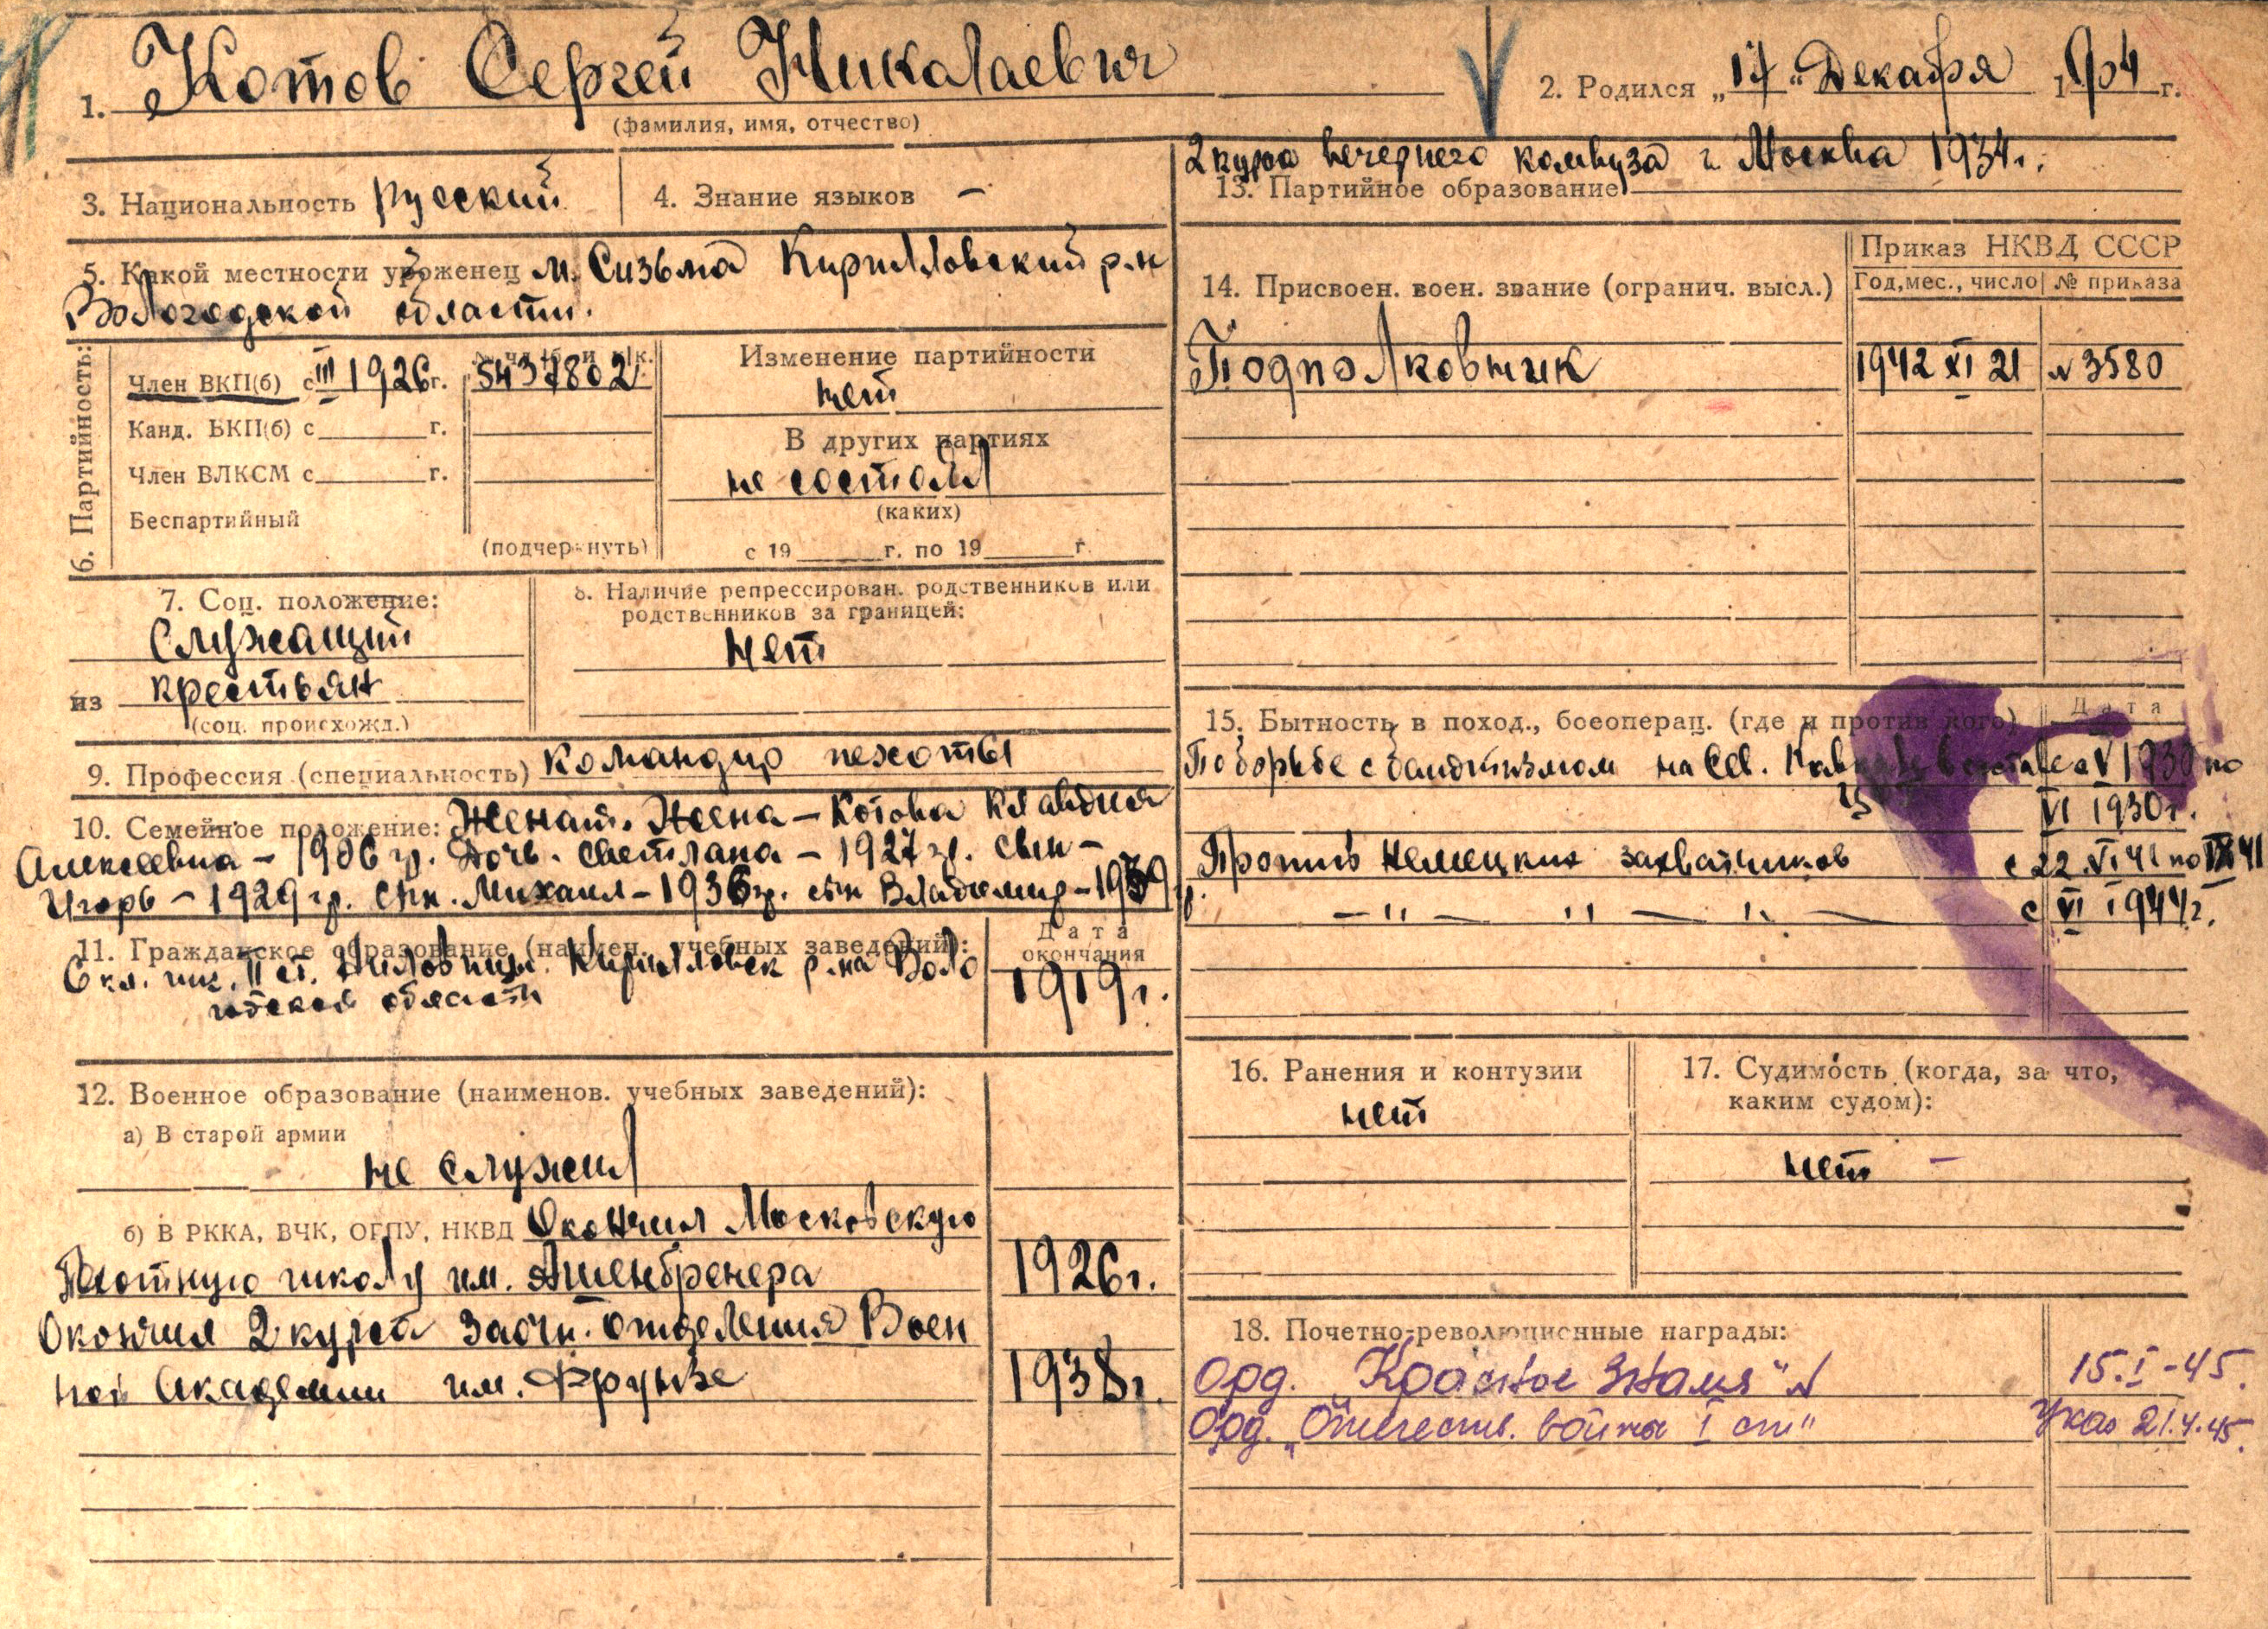 1. Котов Сергей Николаевич
(фамилия, имя, отчество)
2. Родился „17“ Декабря 1904 г.
3. Национальность русский
4. Знание языков —
5. Какой местности уроженец м. Сизьма Кирилловский р-н
Вологодской области.
6. Партийность:
Член ВКП(б) с III 1926 г. 5437802
Канд. ВКП(б) с г.
Член ВЛКСМ с г.
Беспартийный
(подчеркнуть)
Изменение партийности
нет
В других партиях
не состоял
(каких)
с 19 г. по 19 г.
7. Соц. положение:
Служащий
из крестьян
(соц. происхожд.)
8. Наличие репрессирован. родственников или
родственников за границей:
нет
9. Профессия (специальность) командир пехоты
10. Семейное положение: Женат. Жена – Котова Клавдия
Алексеевна – 1906 гр. Дочь. Светлана – 1927 гр. сын –
Игорь – 1929 гр. сын. Михаил – 1936 гр. сын Владимир – 1939
11. Гражданское образование (наимен. учебных заведений):
Дата
окончания
6 кл. шк. II ст. Кирилловск р-на Воло
годской области
1919 г.
12. Военное образование (наименов. учебных заведений):
а) В старой армии
не служил
б) В РККА, ВЧК, ОГПУ, НКВД Окончил Московскую
Пехотную школу им. Ашенбренера 1926 г.
Окончил 2 курса заочн. отделения Воен
ной Академии им. Фрунзе 1938 г.
2 курса вечернего комвуза г. Москва 1934 г.
13. Партийное образование
14. Присвоен. воен. звание (огранич. высл.)
Приказ НКВД СССР
Год, мес., число
№ приказа
Подполковник 1942 XI 21 № 3580
15. Бытность в поход., боеоперац. (где и против кого)
Дата
По борьбе с бандитизмом на Сев. Кавказе в составе с V 1930 по
VI 1930 г.
Против Немецких захватчиков с 22.VI 41 по IX 41
— " — " — " — с VI 1944 г.
16. Ранения и контузии
нет
17. Судимость (когда, за что,
каким судом):
нет –
18. Почетно-революционные награды:
Орд. „Красное Знамя“ № 15.I-45.
Орд. „Отечеств. войны I ст“ Указ 21.4.45.